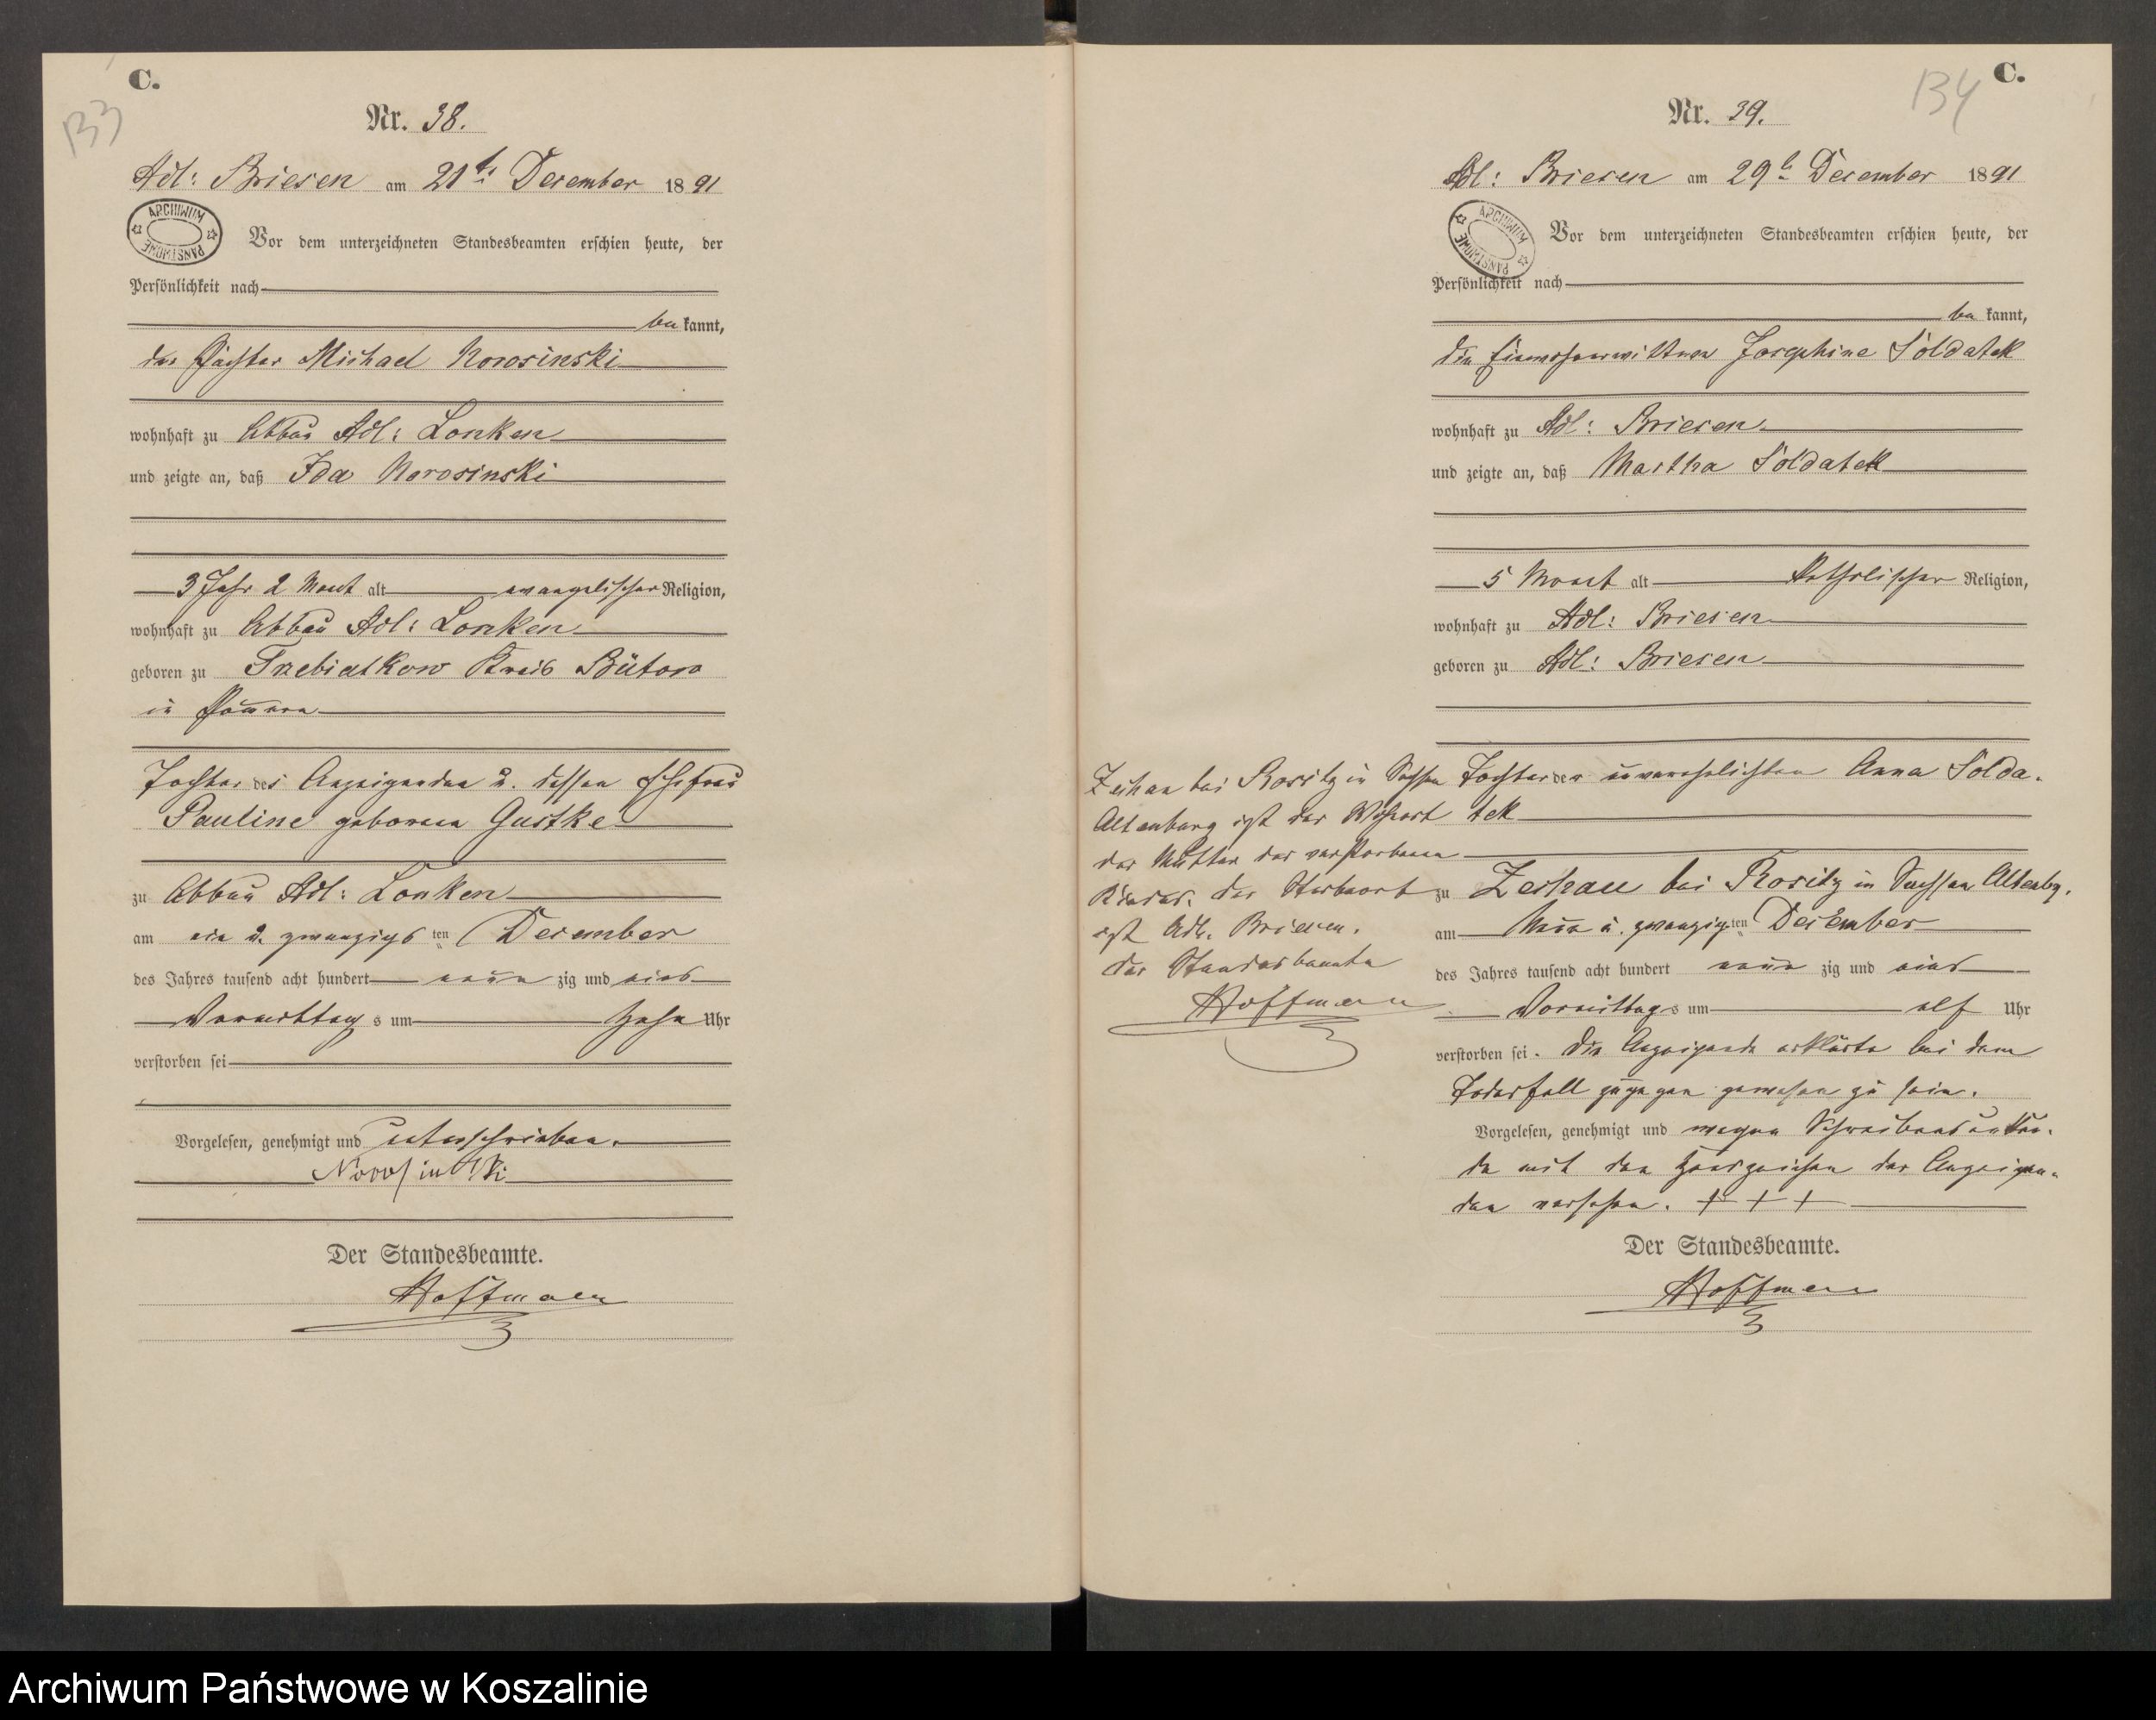 C.
133
Nr. 38.
Adl: Briesen am 21t. Dezember 1891
ARCHIWUM PAŃSTWOWE
Vor dem unterzeichneten Standesbeamten erschien heute, der
Persönlichkeit nach
be kannt,
der Pächter Michael Norosinski
wohnhaft zu Abbau Adl: Lonken
und zeigte an, daß Ida Norosinski
3 Jahr 2 Monat alt evangelischer Religion,
wohnhaft zu Abbau Adl: Lonken
geboren zu Trebiatkow Kreis Bütow
in Pommern
Tochter des Anzeigenden u. dessen Ehefrau
Pauline geborenen Gustke
zu Abbau Adl: Lonken
am ein u. zwanzigs ten Dezember
des Jahres tausend acht hundert neun zig und eins
Vormittag s um zehn Uhr
verstorben sei
Vorgelesen, genehmigt und unterschrieben.
Norosinski
Der Standesbeamte.
Hoffmann
C.
134
Nr. 39.
Adl: Briesen am 29t Dezember 1891
ARCHIWUM PAŃSTWOWE
Vor dem unterzeichneten Standesbeamten erschien heute, der
Persönlichkeit nach
be kannt,
die Einwohnerwittwe Josephine Soldatek
wohnhaft zu Adl: Briesen
und zeigte an, daß Martha Soldatek
5 Monat alt katholischer Religion,
wohnhaft zu Adl: Briesen
geboren zu Adl: Briesen
Tochter der unverehelichten Anna Solda-
tek
zu Zechau bei Rositz in Sachsen Altenbg.
am Neun u. zwanzigsten Dezember
des Jahres tausend acht hundert neun zig und eins
Vormittag s um elf Uhr
verstorben sei. Die Anzeigende erklärte bei dem
Todesfall zugegen gewesen zu sein.
Vorgelesen, genehmigt und wegen Schreibensunkun-
de mit den Handzeichen der Anzeigen-
den versehen. + + +
Der Standesbeamte.
Hoffmann
Zechau bei Rositz in Sachsen
Altenburg ist der Wohnort
der Mutter des verstorbenen
Kindes. Der Sterbeort
ist Adl. Briesen.
Der Standesbeamte
Hoffmann
Archiwum Państwowe w Koszalinie